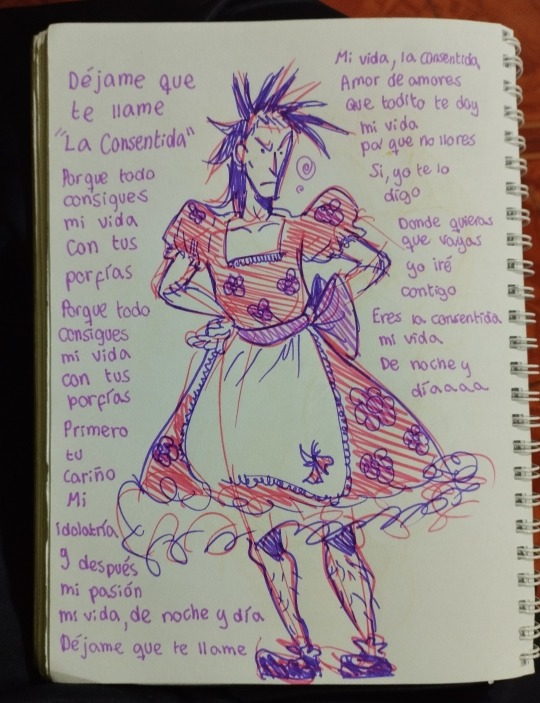 Déjame que
te llame
"La Consentida"
Porque todo
consigues
mi vida
con tus
porfías
Porque todo
consigues
mi vida
con tus
porfías
Primero
tu
cariño
Mi
idolatría
y después
mi pasión
mi vida, de noche y día
Déjame que te llame
Mi vida, la consentida
Amor de amores
Que todito te doy
mi vida
pa' que no llores
Si, yo te lo
digo
Donde quieras
que vayas
yo iré
contigo
Eres la consentida
mi vida
De noche y
díaaaa